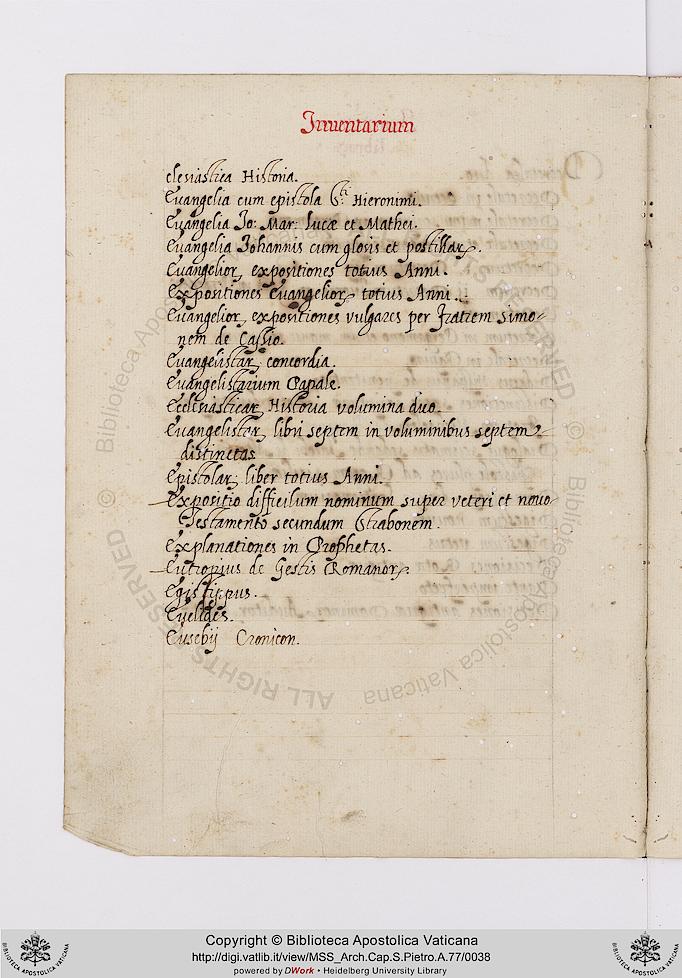 Inuentarium
clesiastica Historia.
Euangelia cum epistola S.ti Hieronimi.
Euangelia Io: Mar: Lucæ et Mathei.
Euangelia Iohannis cum glosis et postillar.
Euangelior, expositiones totius Anni.
Expositiones Euangelior, totius Anni.
Euangelior, expositiones vulgares per Fratrem Simo-
nem de Cassio.
Euangelistar, concordia.
Euangelistarium Capale.
Ecclesiasticar, Historia volumina duo.
Euangelistar, libri septem in voluminibus septem
distinctas
Epistolar, liber totius Anni.
Expositio difficilum nominum super veteri et nouo
Testamento secundum Strabonem.
Explanationes in Prophetas.
Eutropius de Gestis Romanor.
Egisippus.
Euclides.
Eusebij Cronicon.
© Biblioteca Apostolica Vaticana
ALL RIGHTS RESERVED
Copyright © Biblioteca Apostolica Vaticana
http://digi.vatlib.it/view/MSS_Arch.Cap.S.Pietro.A.77/0038
powered by DWork • Heidelberg University Library